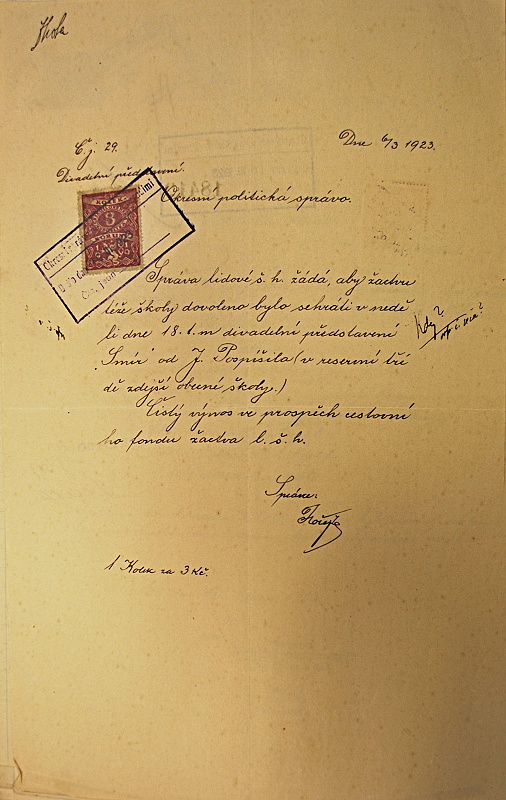 Č. j. 29.
Dne 6/3 1923.
Divadelní představení.
Okresní politická správo.
KOLEK
3
KORUNY
Správa lidové š. h. žádá, aby žactvu
téže školy dovoleno bylo sehráti v nedě
li dne 18. t. m divadelní představení
"Smír" od J. Pospíšila (v reservní tří
dě zdejší obecné školy.)
Kdy?
Čistý výnos ve prospěch cestovní
ho fondu žactva l. š. h.
Správce:
1 Kolek za 3 Kč.